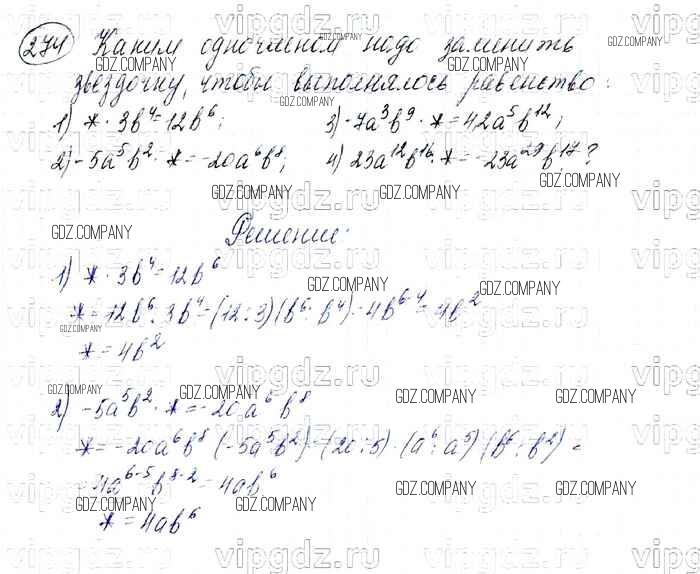 274 Каким одночленом надо заменить
звёздочку, чтобы выполнялось равенство:
1) * · 3b⁴ = 12b⁶; 3) -7a³b⁹ · * = 42a⁵b¹²;
2) -5a⁵b² · * = -20a⁶b⁸; 4) 23a¹²b¹⁶ · * = -23a²⁹b¹⁷?
Решение:
1) * · 3b⁴ = 12b⁶
* = 12b⁶ : 3b⁴ = (12 : 3)(b⁶ : b⁴) = 4b⁶⁻⁴ = 4b²
* = 4b²
2) -5a⁵b² · * = -20a⁶b⁸
* = -20a⁶b⁸ : (-5a⁵b²) = (20 : 5) · (a⁶ : a⁵) · (b⁸ : b²) =
= 4a⁶⁻⁵b⁸⁻² = 4ab⁶
* = 4ab⁶
GDZ.COMPANY
vipgdz.ru